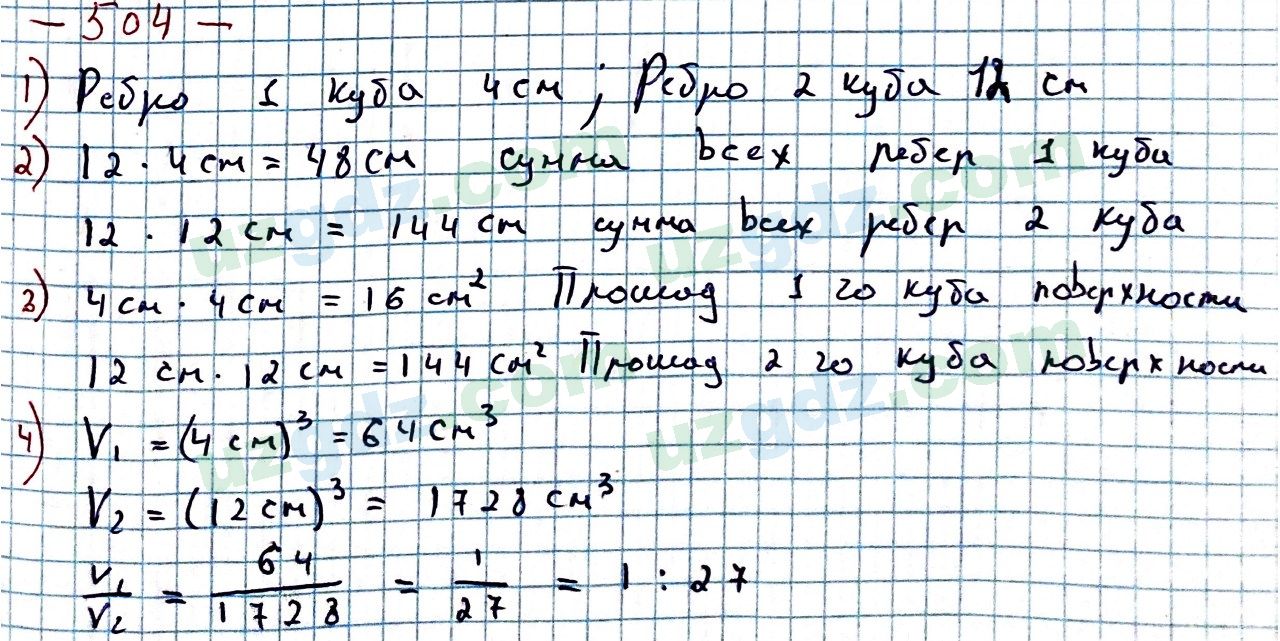 - 504 -
1) Ребро 1 куба 4 см ; Ребро 2 куба 12 см
2) 12 · 4 см = 48 см сумма всех ребер 1 куба
12 · 12 см = 144 см сумма всех ребер 2 куба
3) 4 см · 4 см = 16 см² Прошад 1 го куба поверхности
12 см · 12 см = 144 см² Прошад 2 го куба поверхности
4) V₁ = (4 см)³ = 64 см³
V₂ = (12 см)³ = 1728 см³
V₁/V₂ = 64/1728 = 1/27 = 1 : 27
uzgdz.com
uzgdz.com
uzgdz.com
uzgdz.com